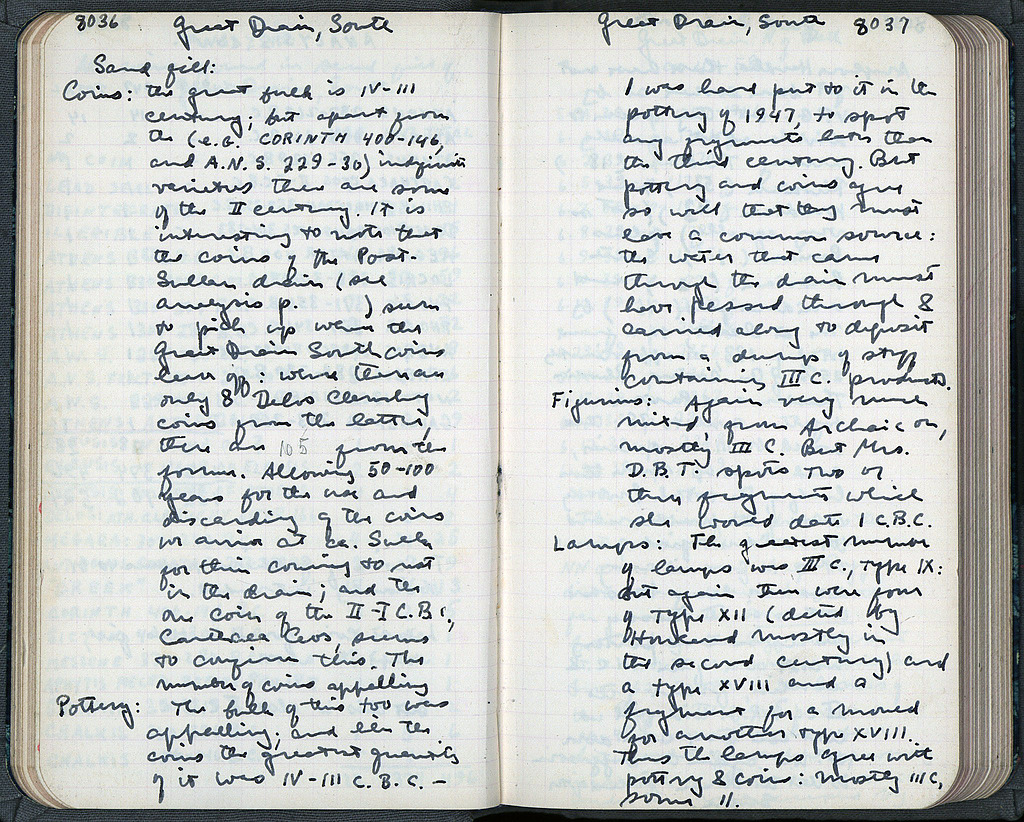 8036
Great Drain, South
Sand fill:
Coins: the great bulk is IV-III
century; but apart from
the (e.g. CORINTH 400-146,
and A.N.S. 229-30)
varieties there are some
of the II century. It is
interesting to note that
the coins of the Post-
Sullan drain (see
analysis p.      ) seem
to pick up when the
Great Drain South coins
leave off: where there are
only 8 Delos Cleruchy
coins from the latter,
there are 105 from the
former. Allowing 50-100
years for the use and
discarding of the coins
we arrive at ca. Sulla
for this coming to rest
in the drain; and the
one coin of the II-I C.B.,
Ceos, seems
to confirm this. The
number of coins appalling
Pottery: The bulk of this too was
appalling; and like the
coins the greatest quantity
of it was IV-III C.B.C. -
Great Drain, South
8037
I was hard put to it in the
pottery of 1947, to spot
any fragments later than
the third century. But
pottery and coins agree
so well that they must
have a common source:
the water that came
through the drain must
have passed through &
carried along to deposit
from a dump of stuff
containing III C. products.
Figurines: Again very much
mixed, from Archaic on,
mostly III C. But Mrs.
D.B.T. spots two or
three fragments which
she would date I C.B.C.
Lamps: The greatest number
of lamps was III C., Type IX:
but again there were four
of Type XII (dated by
Howland mostly in
the second century) and
a Type XVIII and a
fragment for a mould
for another type XVIII.
Thus the lamps agree with
pottery & coins: mostly III C,
some II.